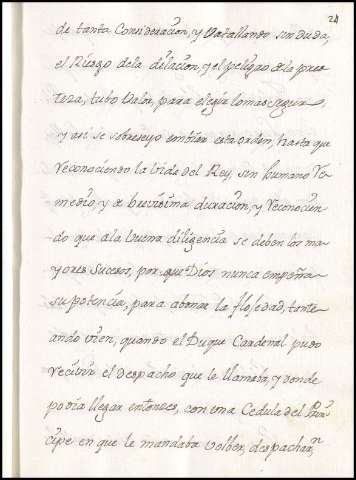 24
de tanta Consideracion, y Batallando sin duda,
el Riesgo dela dilacion, y el peligro de la pres
teza, tubo Valor, para elegir lo mas seguro,
y asi se sobreseyo embiar esta orden, hasta que
reconociendo la vida del Rey, sin humano Re-
medio, y de brevisima duracion, y Reconocien
do que ala buena diligencia se deben los ma
yores Sucesos, por que Dios nunca empeña
su potencia, para abonar la flojedad, tante
ando vien, quando el Duque Cardenal pudo
recivir el despacho que le llamava, y donde
podia llegar entonces, con una Cedula del Prin
cipe en que le mandaba volber, despacharn